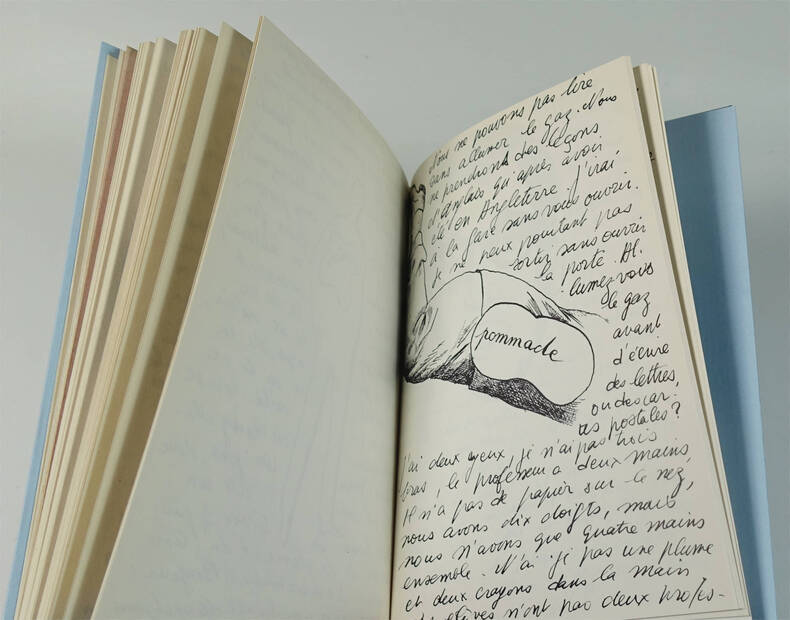 Nous ne pouvons pas lire
sans allumer le gaz. Nous
ne prendrons des leçons
d'anglais qu'après avoir
été en Angleterre. J'irai
à la gare sans vous ouvrir.
Je ne peux pourtant pas
sortir sans ouvrir
la porte. Al-
lumez vous
le gaz
avant
d'écrire
des lettres,
ou des car-
tes postales?
pommade
J'ai deux yeux, je n'ai pas trois
bras, le professeur a deux mains,
Il n'a pas de papier sur le nez,
nous avons dix doigts, mais
nous n'avons que quatre mains
ensemble. N'ai-je pas une plume
et deux crayons dans la main
élèves n'ont pas deux profes-